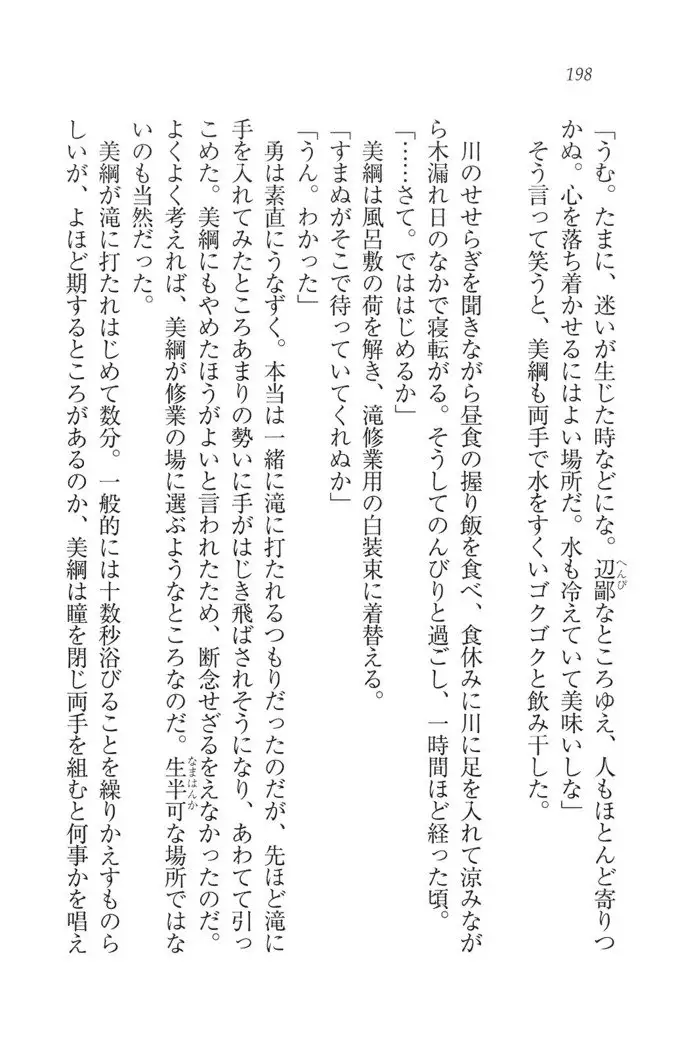 198
「うむ。たまに、迷いが生じた時などにな。辺鄙なところゆえ、人もほとんど寄りつ
へんぴ
かぬ。心を落ち着かせるにはよい場所だ。水も冷えていて美味いしな」
そう言って笑うと、美綱も両手で水をすくいゴクゴクと飲み干した。
川のせせらぎを聞きながら昼食の握り飯を食べ、食休みに川に足を入れて涼みなが
ら木漏れ日のなかで寝転がる。そうしてのんびりと過ごし、一時間ほど経った頃。
「……さて。でははじめるか」
美綱は風呂敷の荷を解き、滝修業用の白装束に着替える。
「すまぬがそこで待っていてくれぬか」
「うん。わかった」
勇は素直にうなずく。本当は一緒に滝に打たれるつもりだったのだが、先ほど滝に
手を入れてみたところあまりの勢いに手がはじき飛ばされそうになり、あわてて引っ
こめた。美綱にもやめたほうがよいと言われたため、断念せざるをえなかったのだ。
よくよく考えれば、美綱が修業の場に選ぶようなところなのだ。生半可な場所ではな
なまはんか
いのも当然だった。
美綱が滝に打たれはじめて数分。一般的には十数秒浴びることを繰りかえすものら
しいが、よほど期するところがあるのか、美綱は瞳を閉じ両手を組むと何事かを唱え